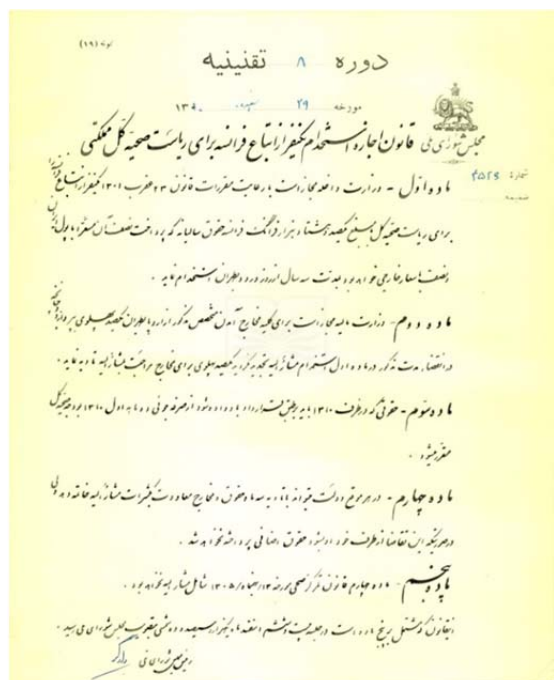 نمره (۱۹)
دوره ۸ تقنینیه
مورخه ۲۹ ۱۳۱۰
مجلس شورای ملی
قانون اجازه استخدام یکنفر از اتباع فرانسه برای ریاست صحیه کل مملکتی
نمره ۴۵۲۹
ضمیمه
ماده اول - وزارت داخله مجاز است با رعایت مقررات قانون ۲۳ عقرب ۱۳۰۱ یکنفر از اتباع فرانسه
برای ریاست صحیه کل با مبلغ یکصد و هشتاد هزار فرانک فرانسه حقوق سالیانه که پرداخت نصف آن بپول ایران
و نصف باسعار خارجی خواهد بود بمدت سه سال از روز ورود بطهران استخدام نماید .
ماده دوم - وزارت مالیه مجاز است برای کلیه مخارج آمدن متخصص مذکور از اروپا بطهران یکصد پهلوی بپردازد و چنانچه
در انقضاء مدت مذکور در ماده اول استخدام مشارالیه تجدید نگردد یکصد پهلوی برای مخارج مراجعت بمشارالیه تادیه نماید .
ماده سوم - حقوقی که در ظرف ۱۳۱۰ باید بر طبق قرارداد داده شود از صرفه جوئی دو ماهه اول ۱۳۱۰ بودجه صحیه کل
منظور میشود .
ماده چهارم - در هر موقع دولت میتواند با تادیه سه ماه حقوق و مخارج معاودت کنترات مشارالیه خاتمه دهد ولی
در صورتیکه این تقاضا از طرف خود او بشود حقوق اضافی پرداخته نخواهد شد .
ماده پنجم - ماده چهارم قانون تمرکز صحی مورخه ۱۳۰۵ شامل مشارالیه نخواهد بود .
این قانون که مشتمل بر پنج ماده است در جلسه بیست و ششم اسفند ماه یکهزار و سیصد و ده شمسی بتصویب مجلس شورای ملی رسید .
رئیس مجلس شورای ملی
دادگر